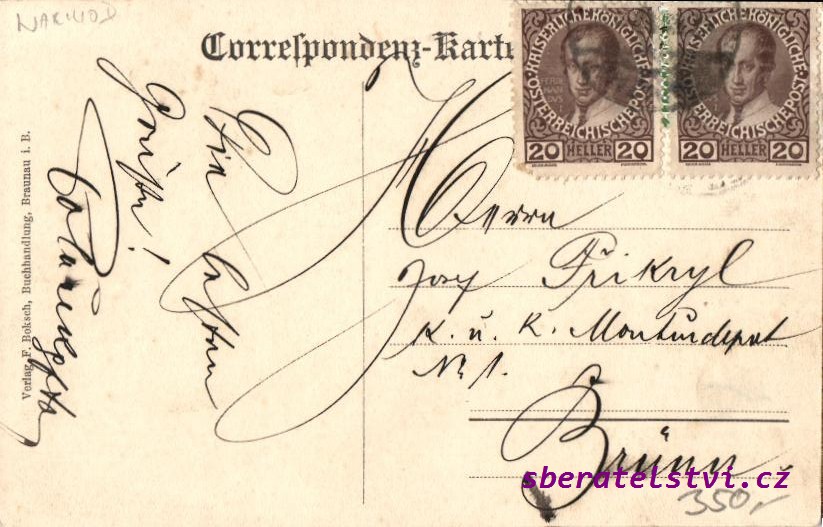 NÁCHOD
Correspondenz-Karte
KAISERLICHE KÖNIGLICHE
ÖSTERREICHISCHE POST
20 HELLER 20
KAISERLICHE KÖNIGLICHE
ÖSTERREICHISCHE POST
20 HELLER 20
Verlag F. Boksch, Buchhandlung, Braunau i. B.
Herrn
Josef Přikryl
k. u. k. Monturdepot
Nr. 1.
Brünn
sberatelstvi.cz
350,-